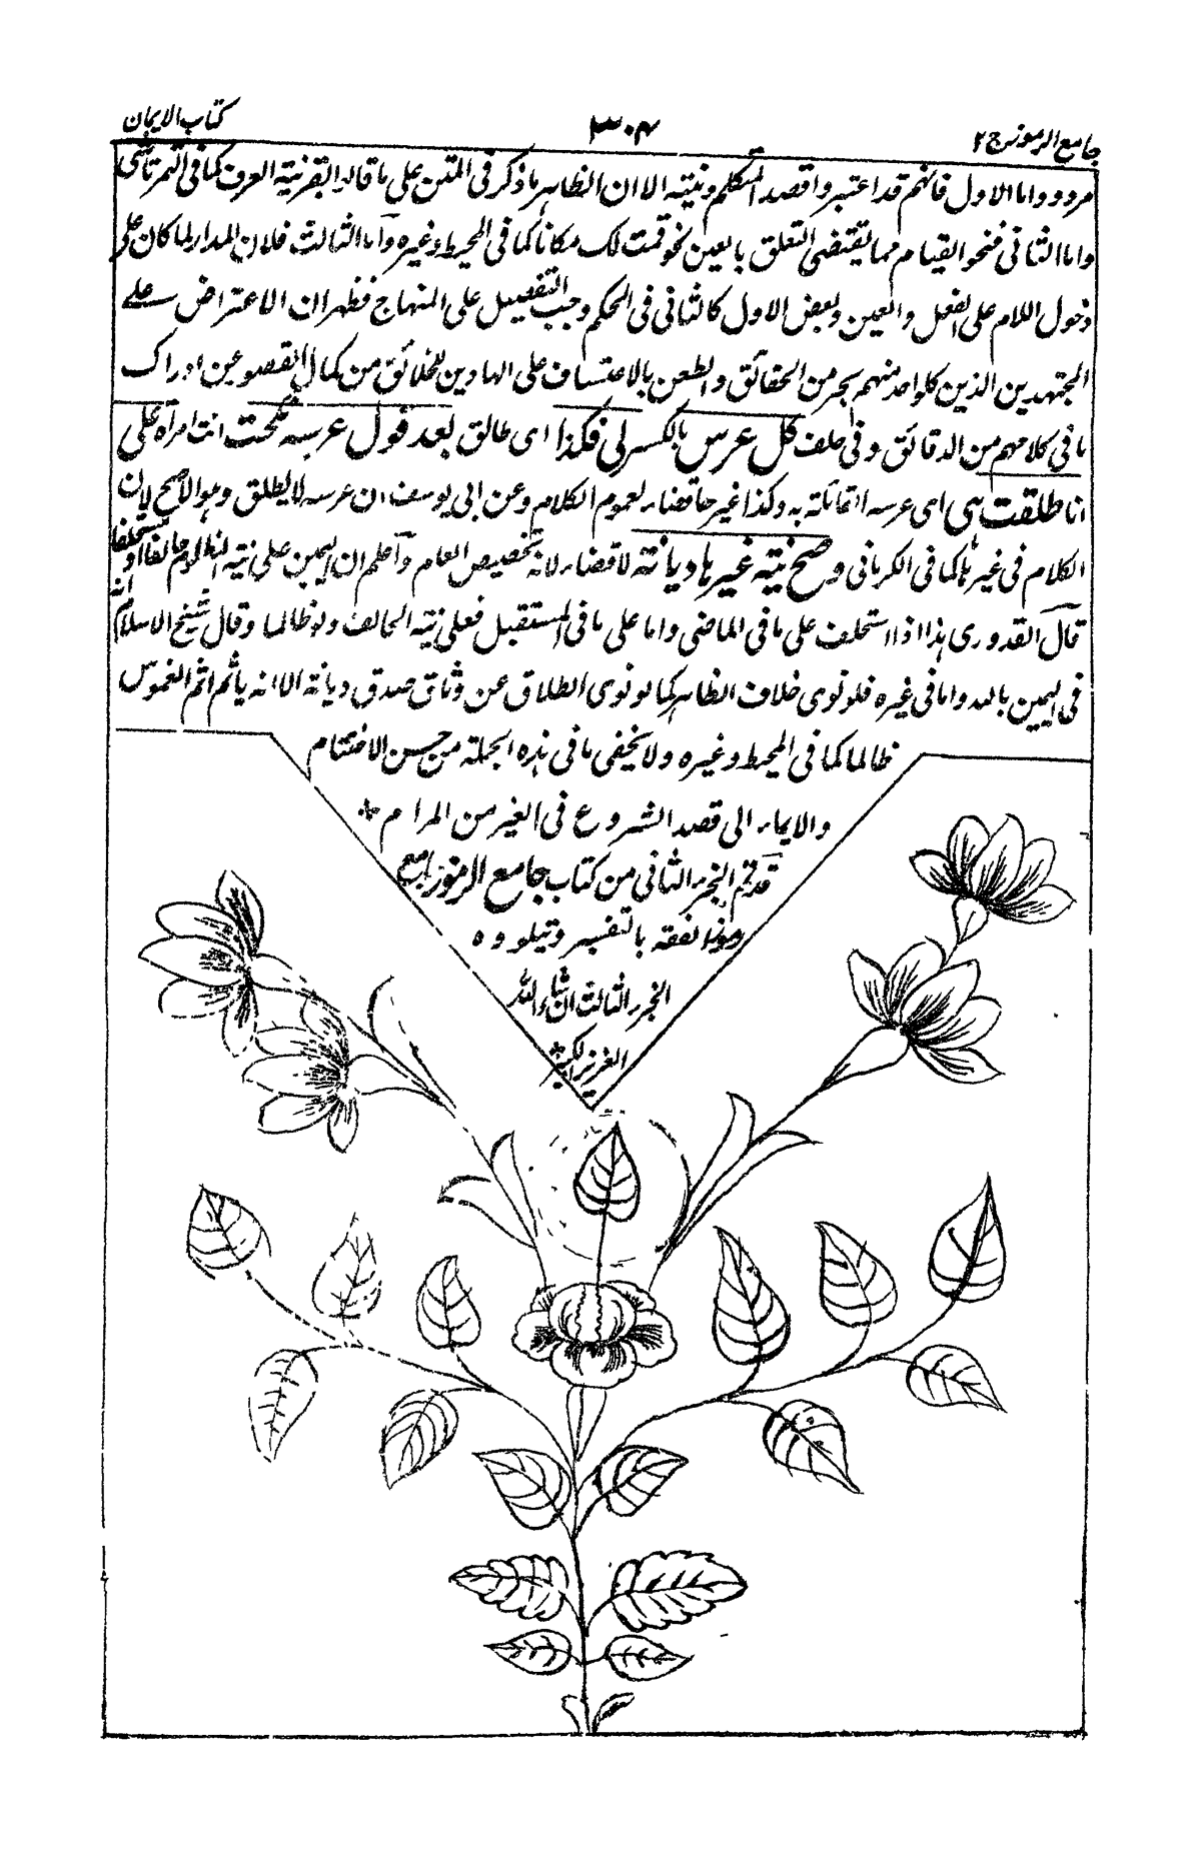 جامع الرموز ج ٢
٣٠٤
كتاب الايمان
مردود واما الاول فانهم قد اعتبروا قصد المتكلم ونيته الا ان الظاهر ما ذكر فى المتن على ما قالوا بقرنية العرف كما فى التمرتاشى
واما الثانى فنحو القيام مما يقتضى التعلق بالعين نحو قمت لك مكانا كما فى المحيط وغيره وآما الثالث فلان المدار لما كان على
دخول اللام على الفعل والعين وبعض الاول كالثانى فى الحكم وجب التفصيل على المنهاج فظهر ان الاعتراض على
المجتهدين الذين كل واحد منهم بحر من الحقائق والطعن بالاعتساف على الهادين للخلائق من كمال القصور عن ادراك
ما فى كلامهم من الدقائق وفى حلف كل عرس بالكسر لى فكذا اى طالق بعد قول عرسه نكحت انت امرأة على
انا طلقت هى اى عرسه القائلة به وكذا غيرها قضاء لعموم الكلام وعن ابى يوسف ان عرسه لا يطلق وهو الاصح لان
الكلام فى غيرها كما فى الكرمانى وصح نية غيرها ديانة لا قضاء لانه تخصيص العام وآعلم ان اليمين على نية المظلوم حالفا او مستحلفا
قال القدورى هذا اذا استحلف على ما فى الماضى واما على ما فى المستقبل فعلى نية الحالف ولو ظالما وقال شيخ الاسلام انه
فى اليمين بالله واما فى غيره فلو نوى خلاف الظاهر كما لو نوى الطلاق عن وثاق صدق ديانة الا انه يأثم اثم الغموس
ظالما كما فى المحيط وغيره ولا يخفى ما فى هذه الجملة من حسن الاختتام
والايماء الى قصد الشروع فى الغير من المرام
قد تم الجزء الثانى من كتاب جامع الرموز
بالتفسير ويتلوه
الجزء الثالث ان شاء الله
العزيز الكريم